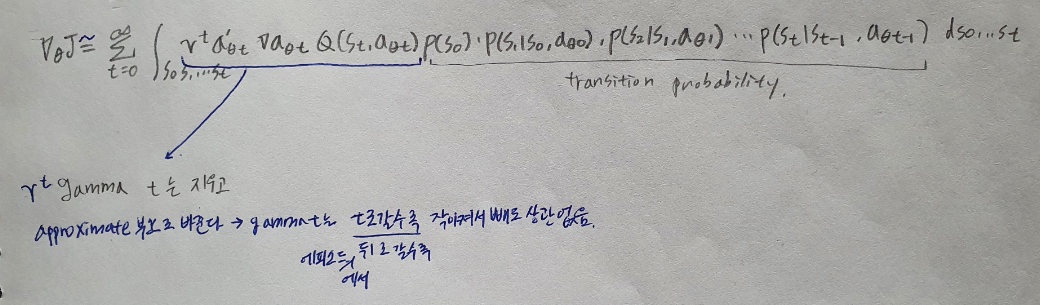 ∇θJ ≅ ∑_{t=0}^{∞} ∫_{s0,s1,...st} γ^t a'θt ∇aθt Q(st, aθt) p(s0)·p(s1|s0, aθ0)·p(s2|s1, aθ1) ··· p(st|st-1, aθt-1) ds0...st
transition probability.
γ^t gamma t는 지우고
approximate 부호로 바꾼다 → gamma t는 t로갈수록 작아져서 빼도 상관 없음.
에피소드에서 뒤로 갈수록